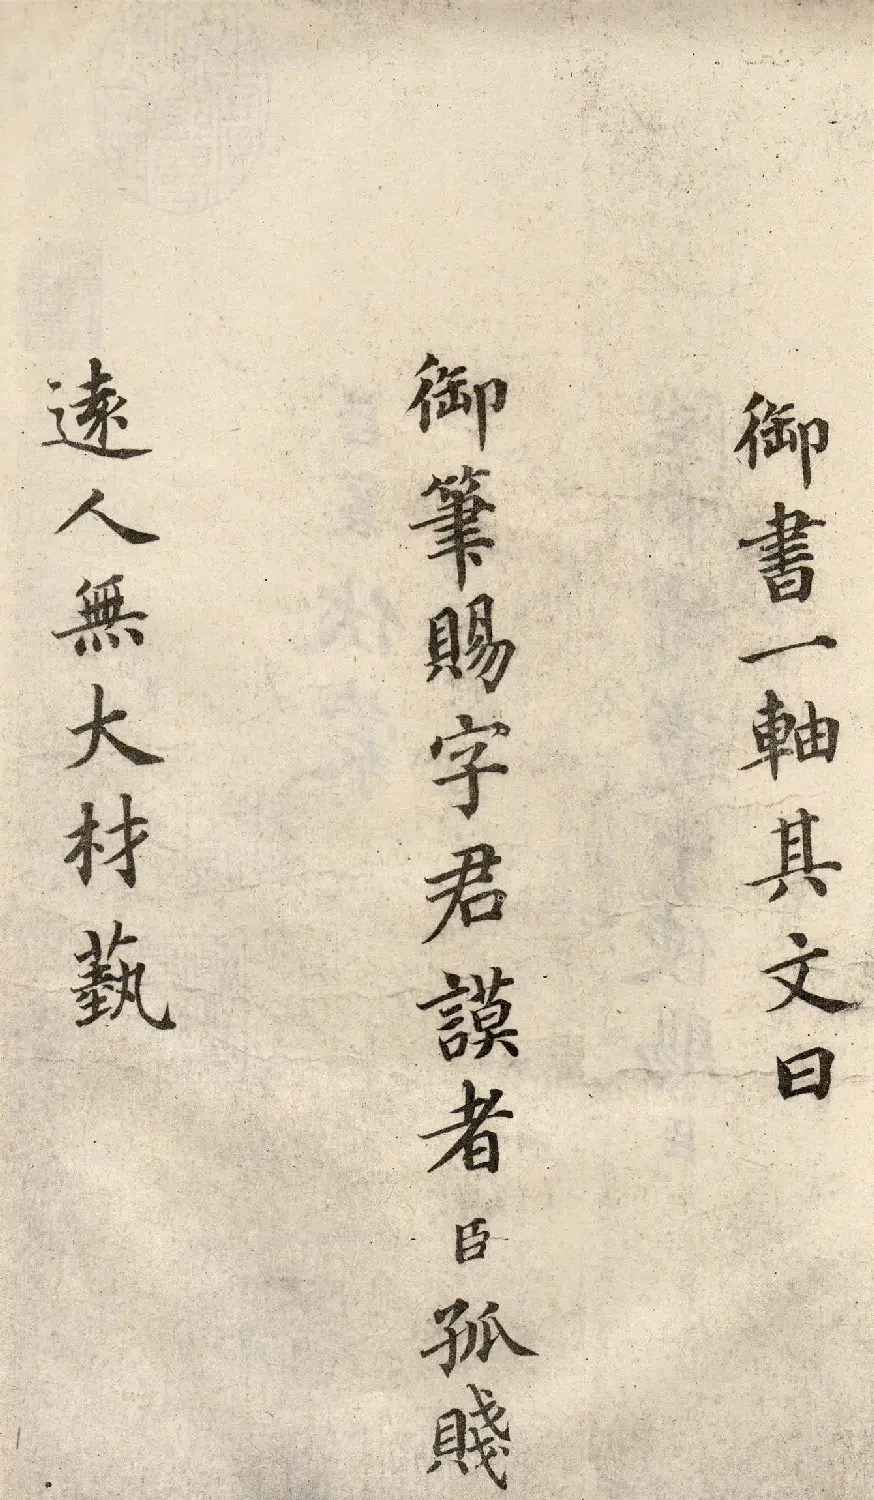 御書一軸其文曰
御筆賜字君謨者臣孤賤
遠人無大材藝